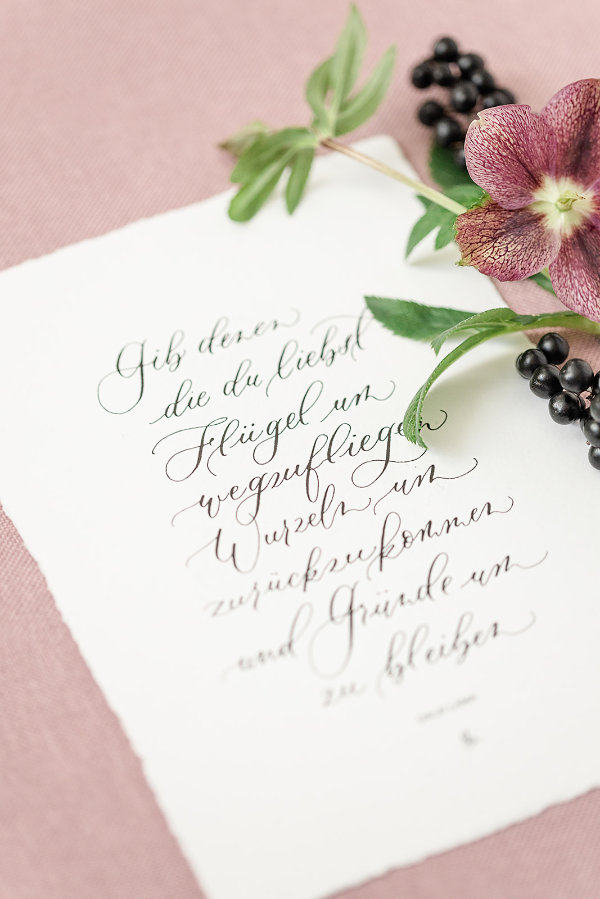 Gib denen
die du liebst
Flügel um
wegzufliegen
Wurzeln um
zurückzukommen
und Gründe um
zu bleiben